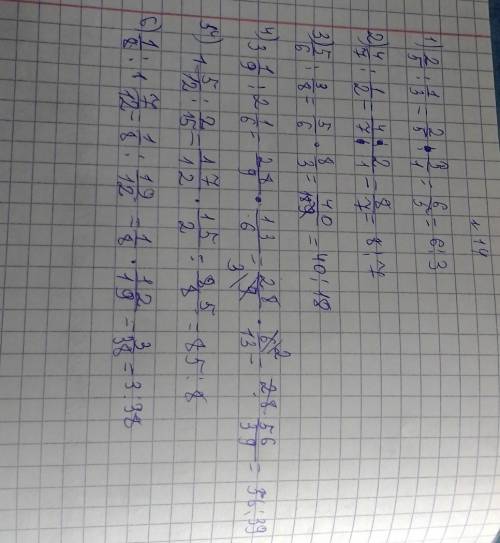 14
1) 2/5 : 1/3 = 2/5 · 3/1 = 6/5 = 6:3
2) 4/7 : 1/2 = 4·2/7·1 = 8/7 = 8:7
3) 5/6 : 3/8 = 5/6 · 8/3 = 40/18 = 40:18
4) 3 1/9 : 2 1/6 = 28/9 · 13/6 = 28/9 3 · 6 2/13 = 28 56/39 = 56:39
5) 1 5/12 : 2/15 = 17/12 · 15/2 = 85/8 = 85:8
6) 1/8 : 1 7/12 = 1/8 : 19/12 = 1/8 · 12/19 = 3/38 = 3:38